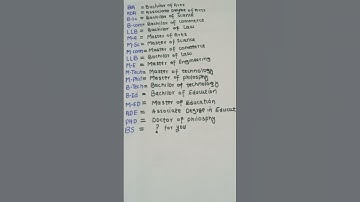 BA = Bachilor of Arts
ADA = Associate Degree of Arts
B-Sc = Bachilor of Science
B-com = Bachilor of commerce
LLB = Bachilor of Law
M-A = Master of Arts
M-Sc = Master of Science
M-com = Master of commerce
LLB = Bachilor of Law
M-E = Master of Engineering
M-Tech = Master of technology
M-Phil = Master of philosphy
B-Tech = Bachilor of technology
B-Ed = Bachilor of Education
M-ED = Master of Education
ADE = Associate Degree in Educat
PhD = Doctor of philosphy
BS = ? for you